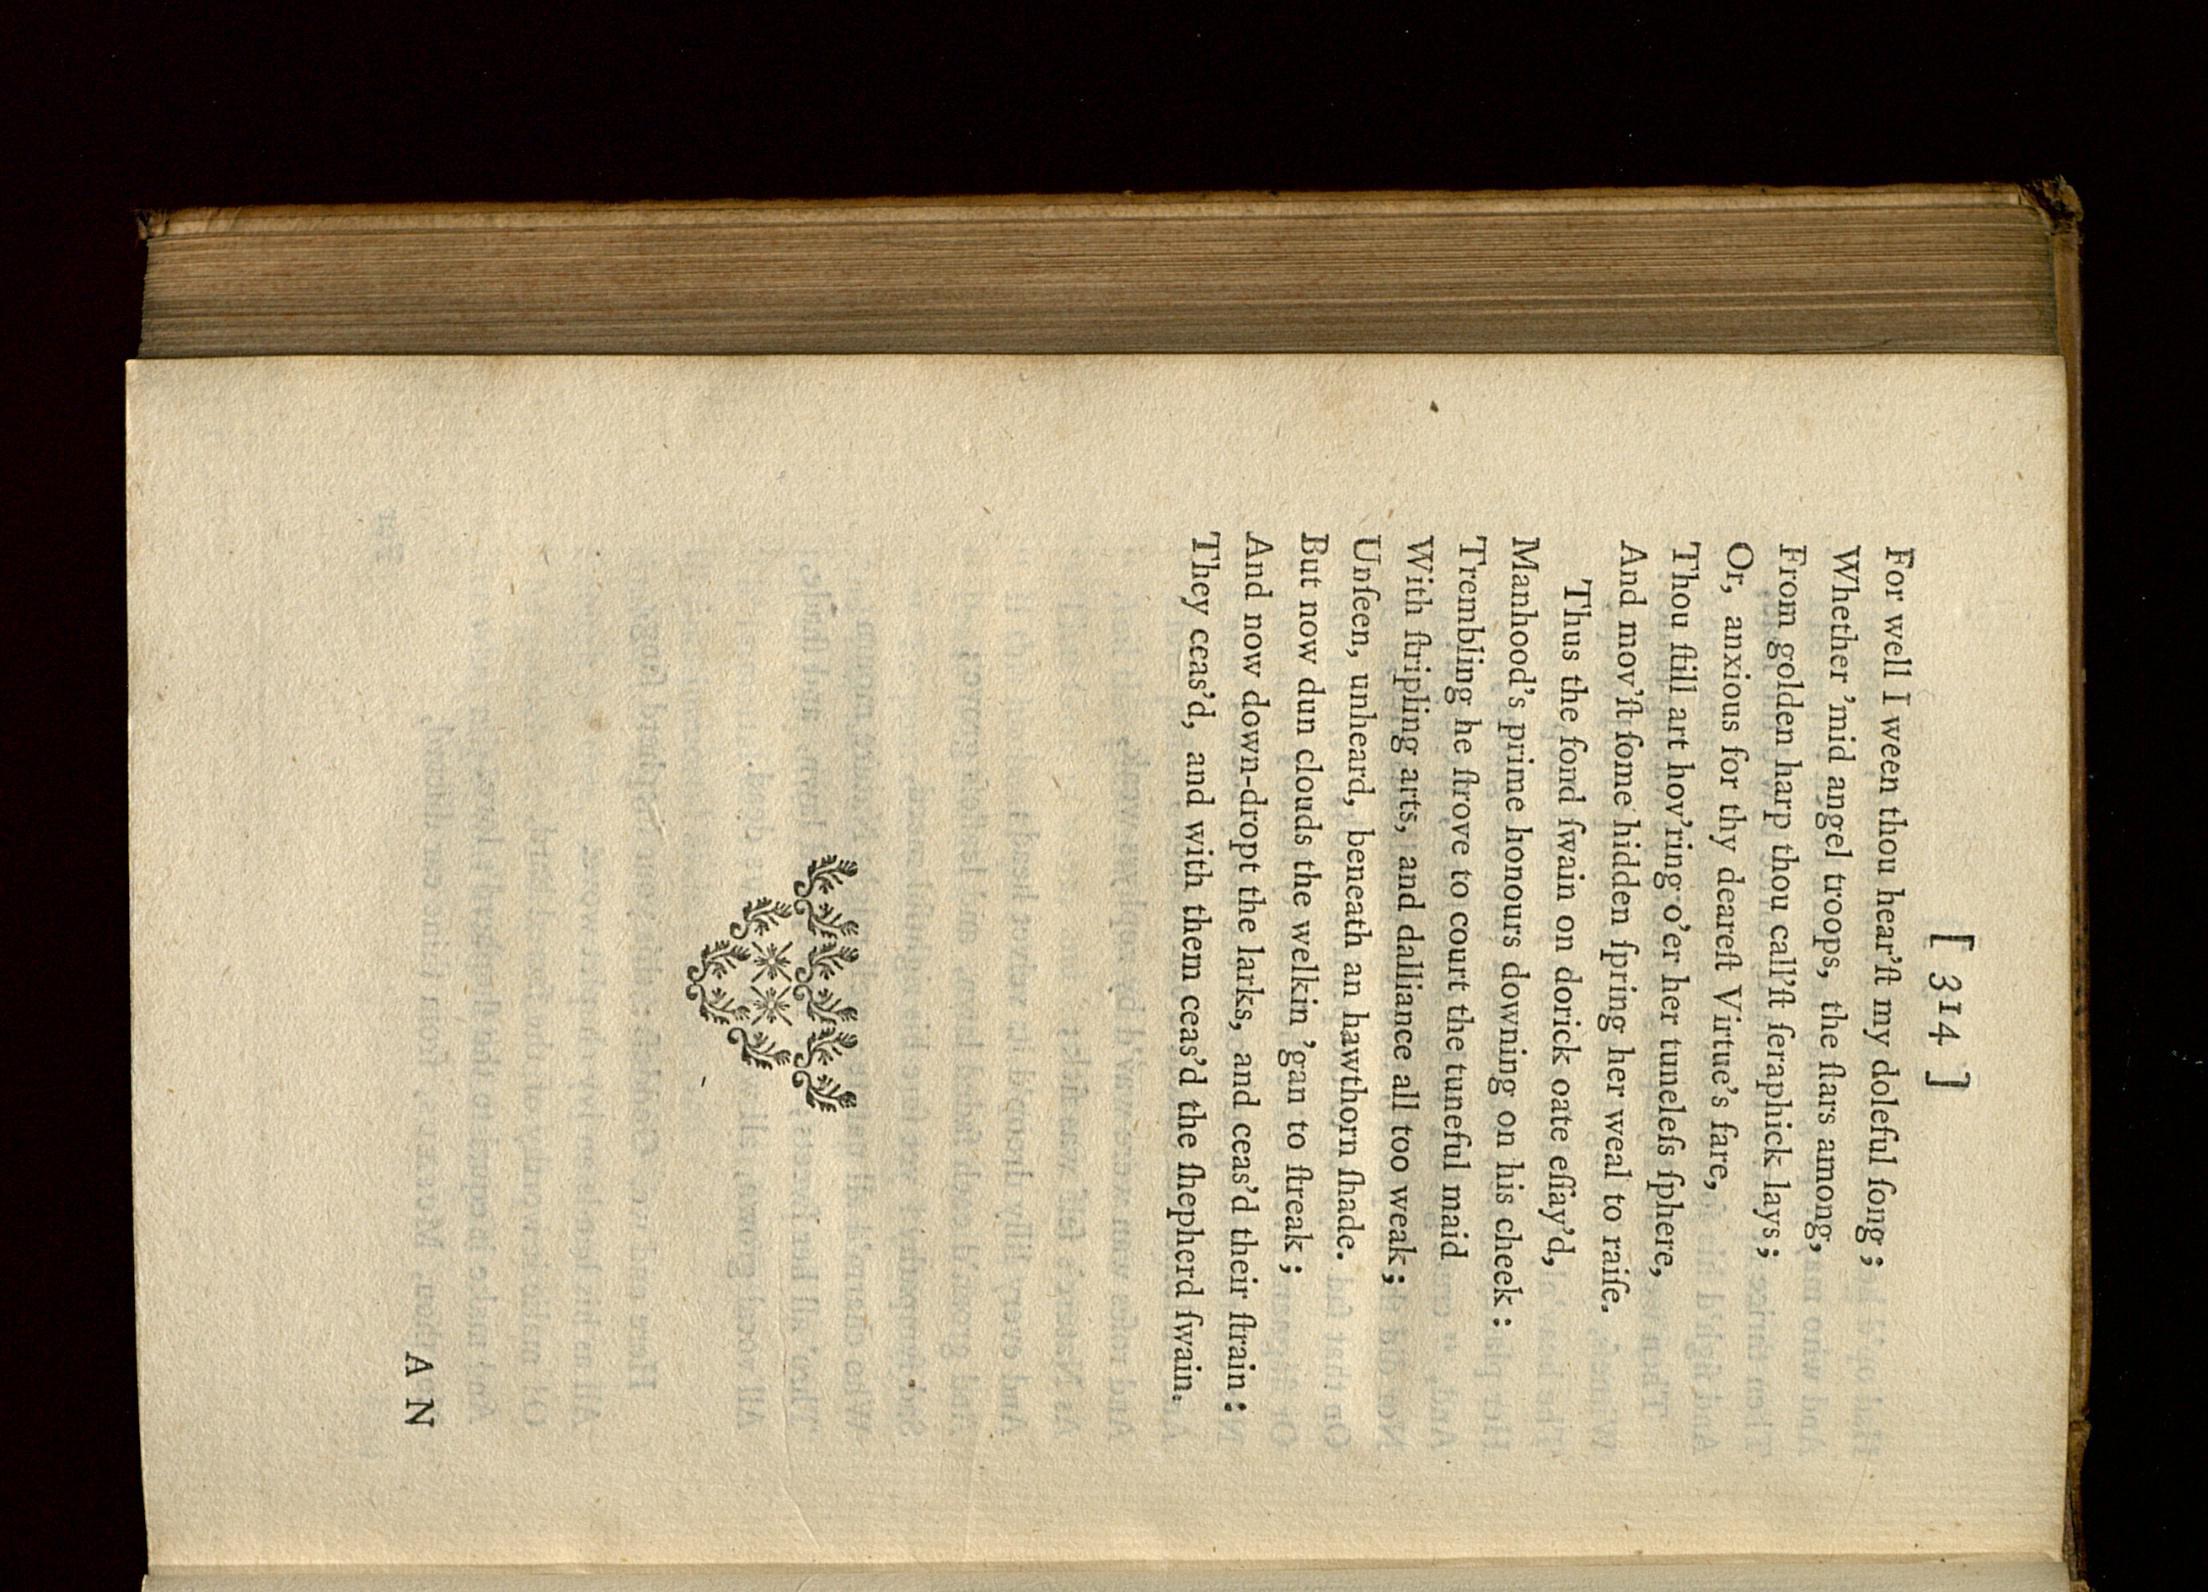 [ 314 ]
For well I ween thou hear'ſt my doleful ſong ;
Whether 'mid angel troops, the ſtars among,
From golden harp thou call'ſt ſeraphick lays ;
Or, anxious for thy deareſt Virtue's fare,
Thou ſtill art hov'ring o'er her tuneleſs ſphere,
And mov'ſt ſome hidden ſpring her weal to raiſe.
Thus the fond ſwain on dorick oate eſſay'd,
Manhood's prime honours downing on his cheek :
Trembling he ſtrove to court the tuneful maid
With ſtripling arts, and dalliance all too weak ;
Unſeen, unheard, beneath an hawthorn ſhade.
But now dun clouds the welkin 'gan to ſtreak ;
And now down-dropt the larks, and ceas'd their ſtrain :
They ceas'd, and with them ceas'd the ſhepherd ſwain.
A N